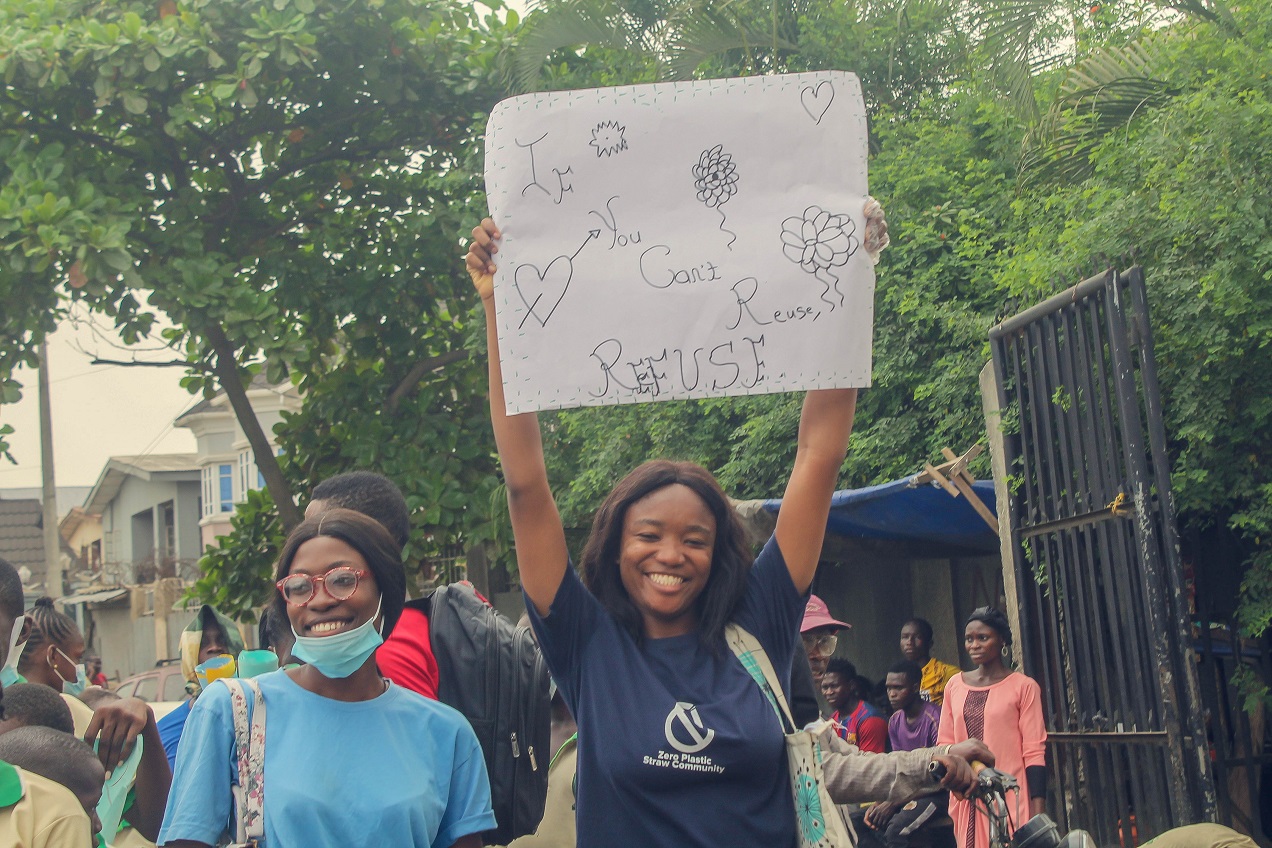 If
You
Can't
Reuse,
REFUSE
Zero Plastic
Straw Community